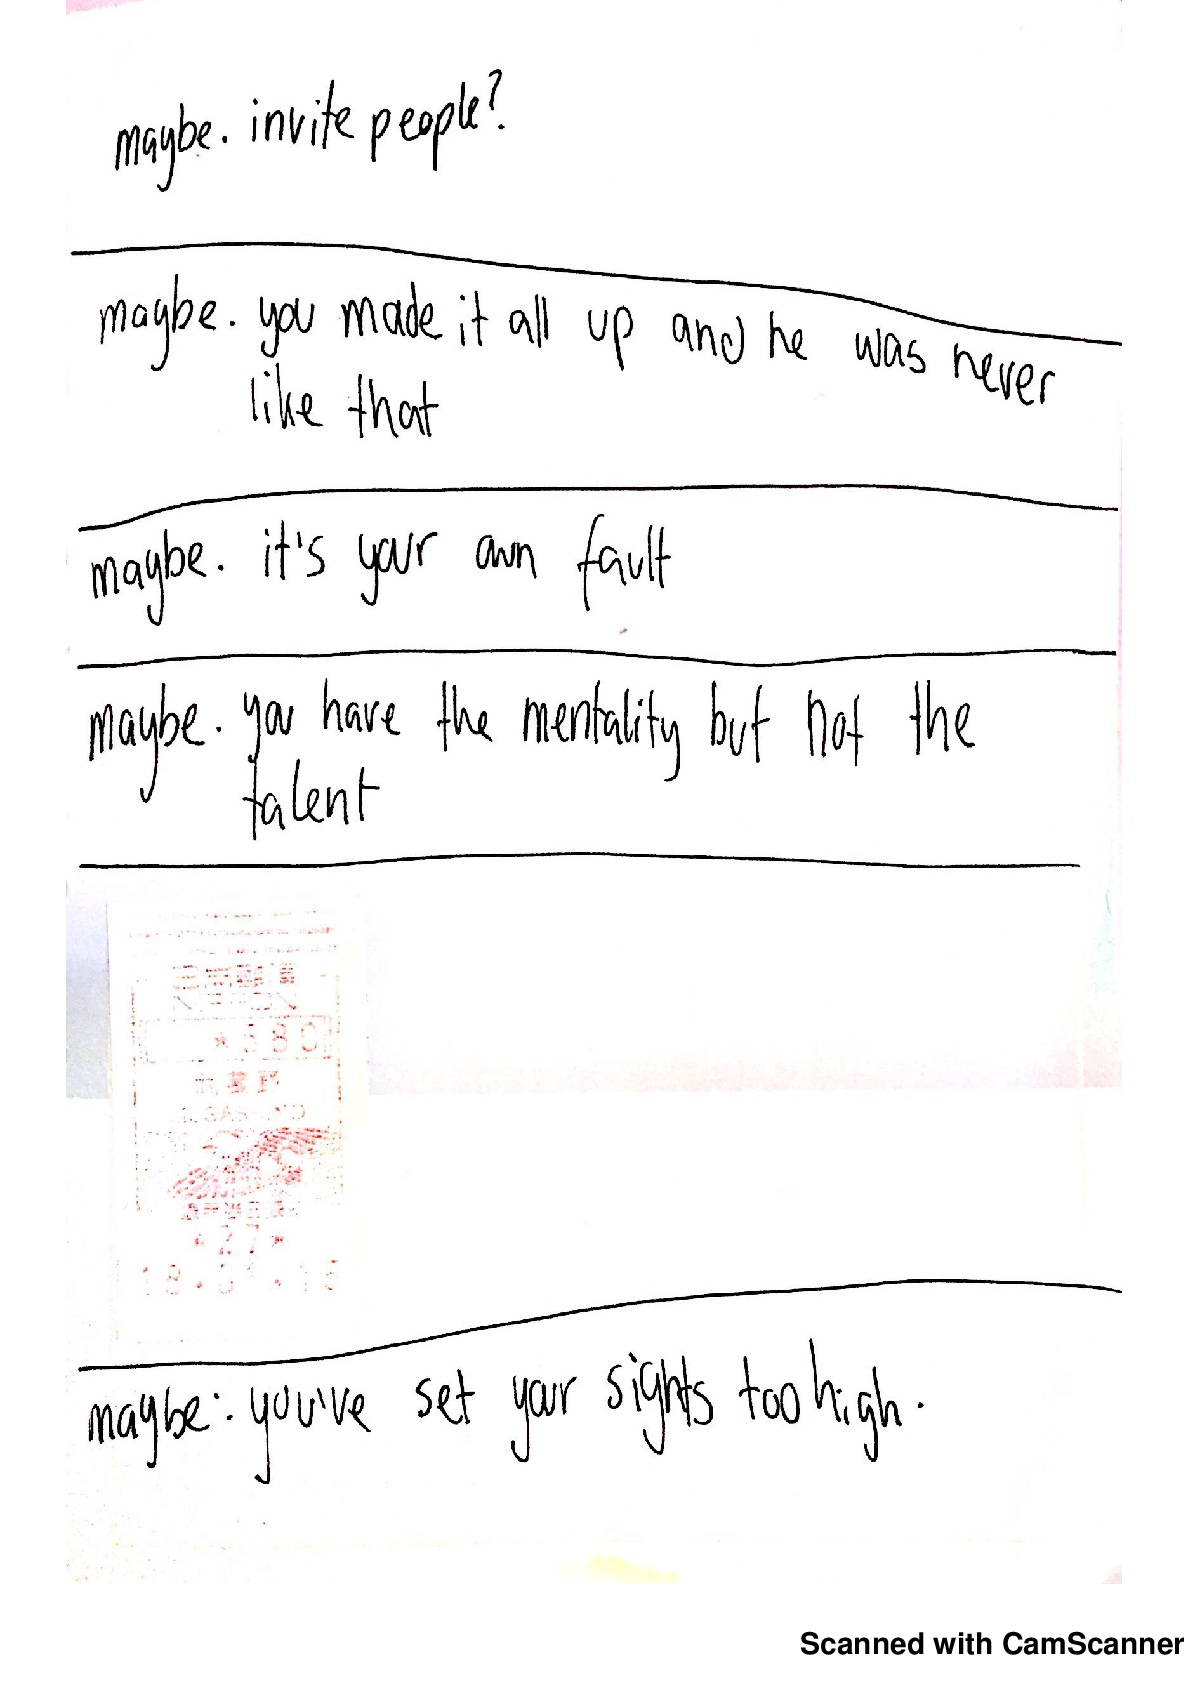 maybe. invite people?
maybe. you made it all up and he was never
like that
maybe. it's your own fault
maybe. you have the mentality but not the
talent
maybe: you've set your sights too high.
Scanned with CamScanner